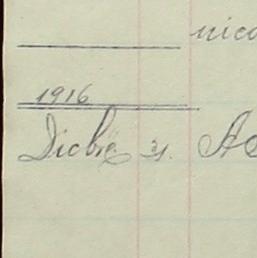 nico
1916
Dicbre 21. A